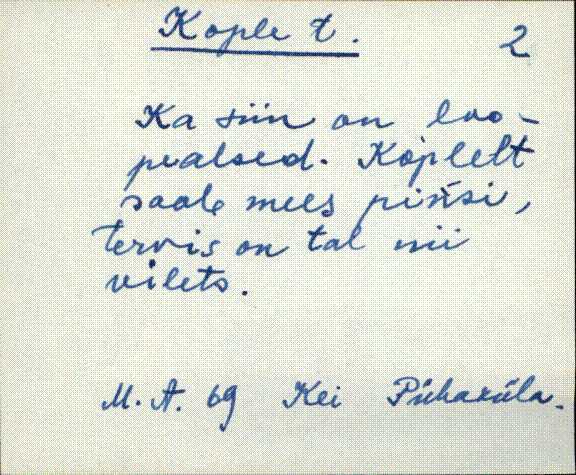 Kople t. 2
Ka siin on loo-
pealsed. Koplelt
saab mees pińsi,
tervis on tal nii
vilets.
M. A. 69 Kei Pühaküla.